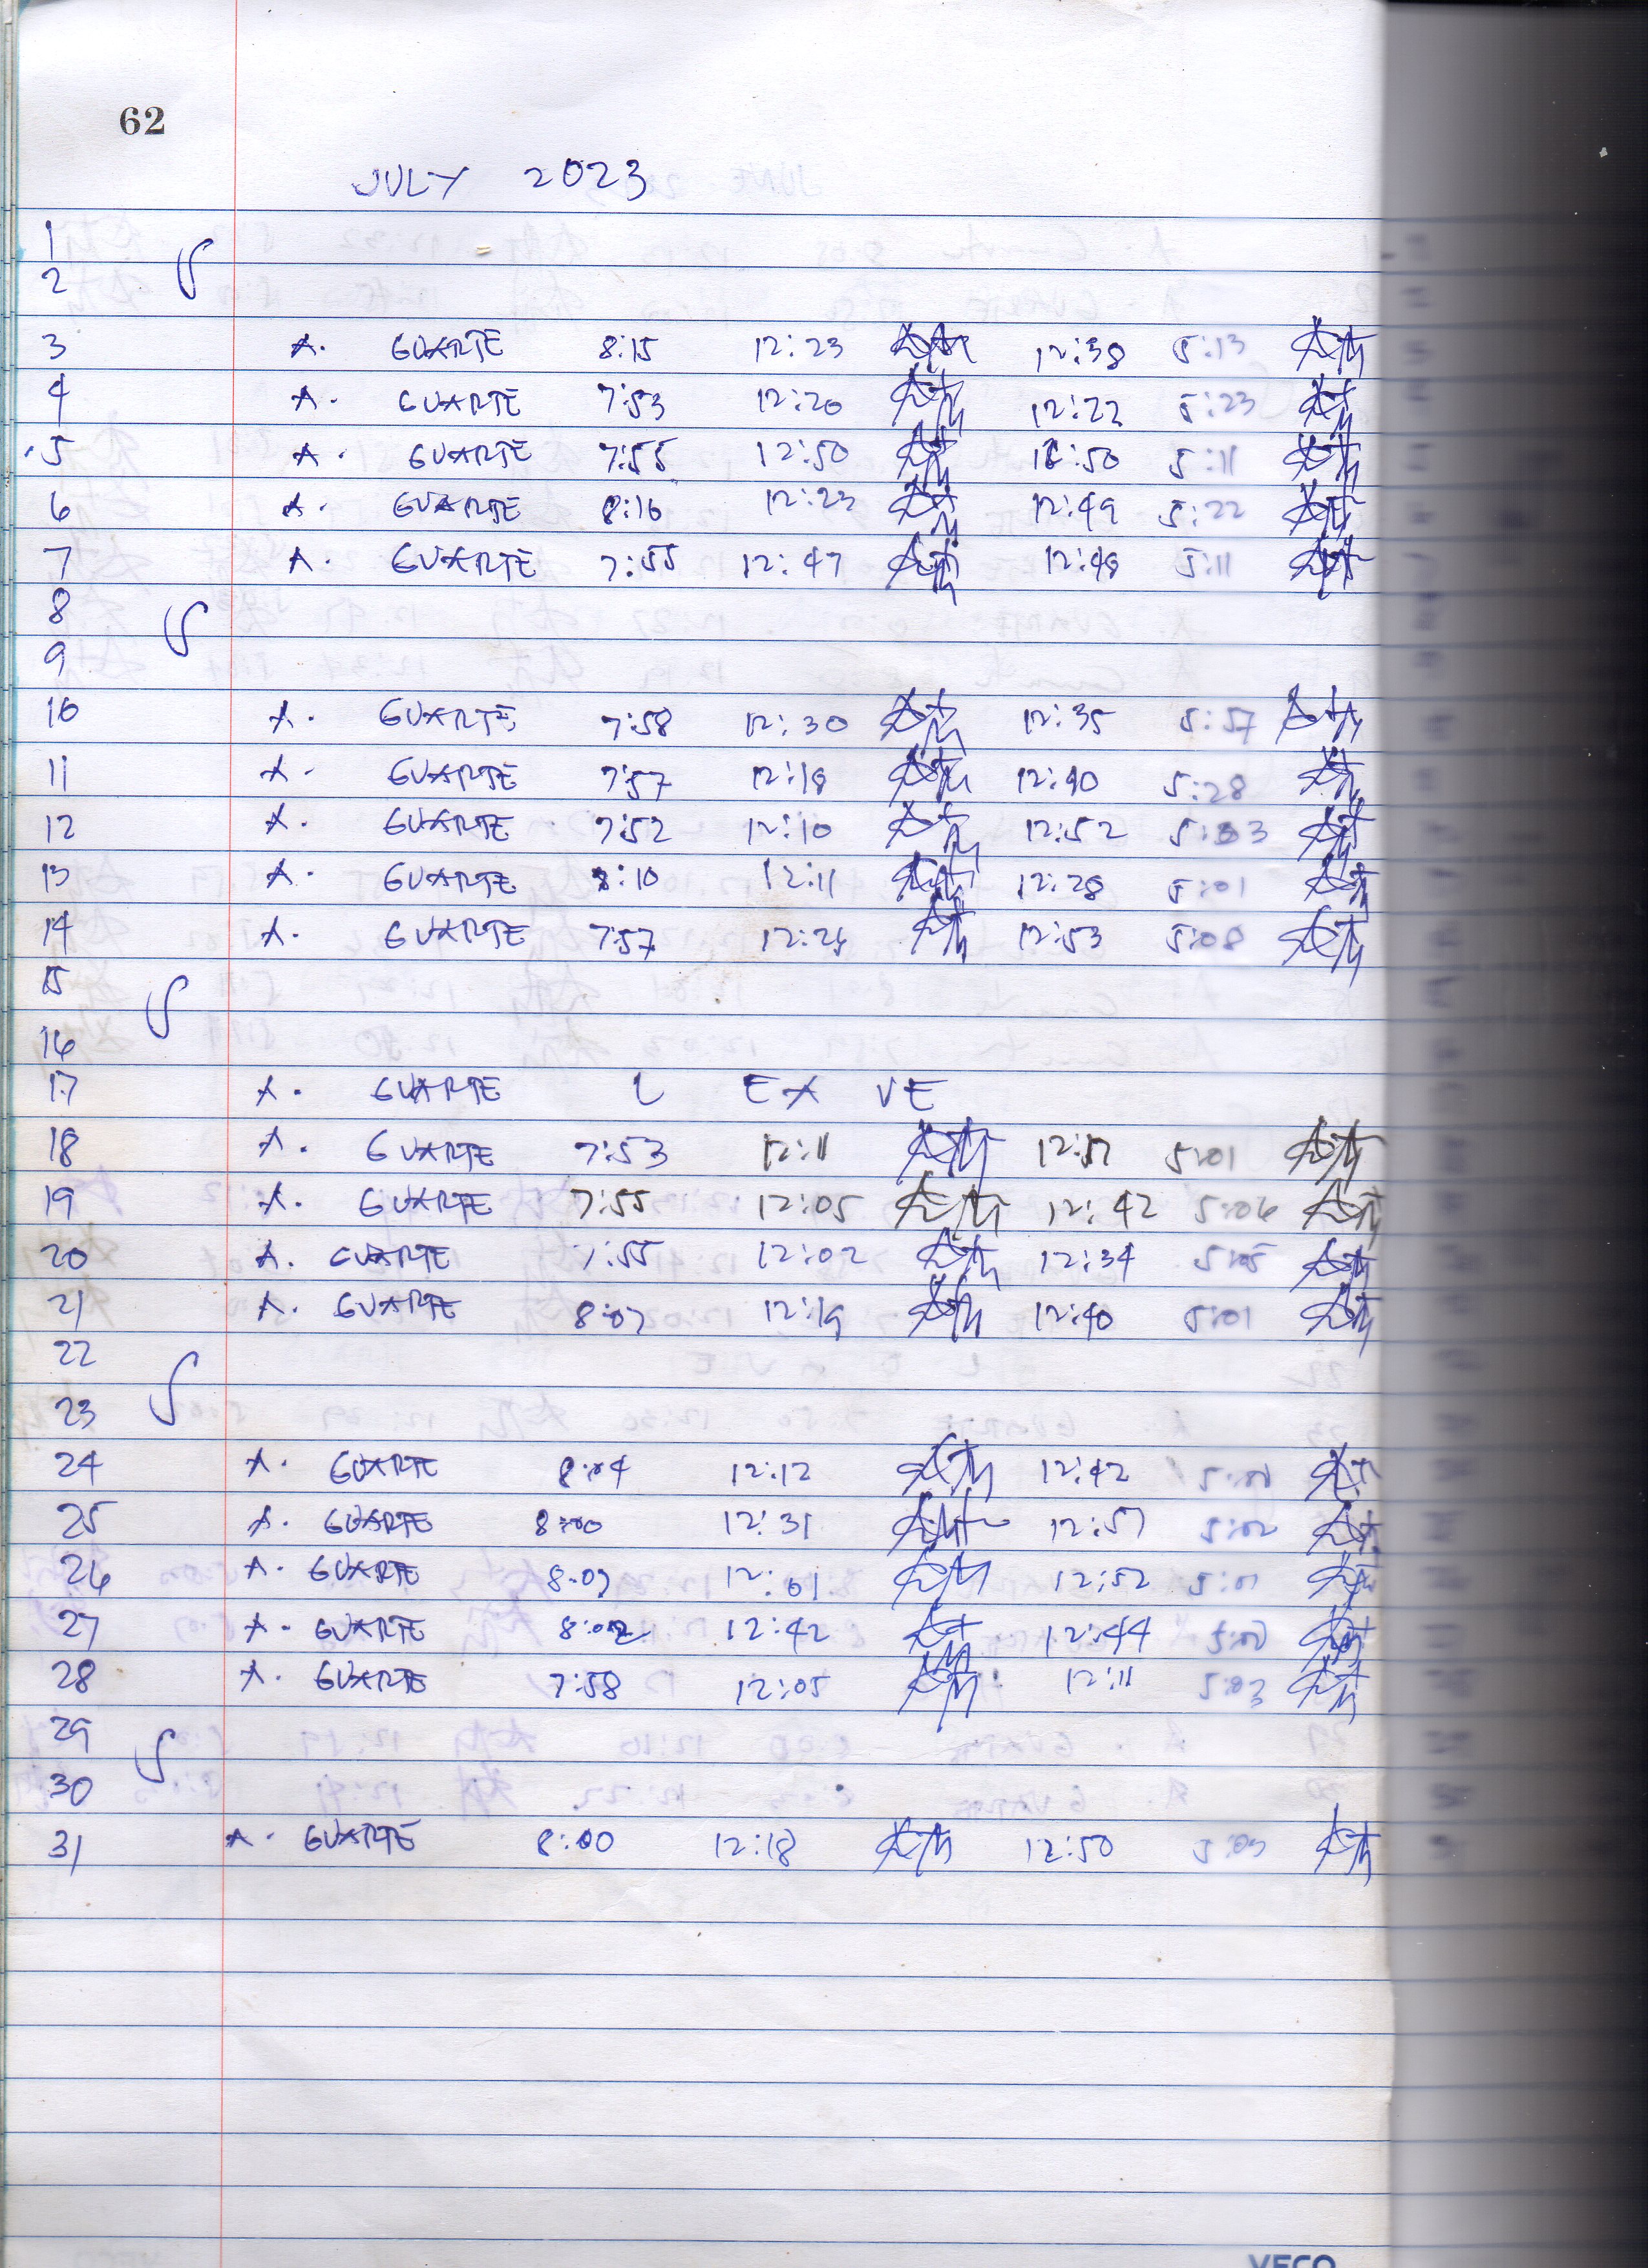 62
JULY 2023
1
2
3 A. GUARTE 8:15 12:23 12:38 5:13
4 A. GUARTE 7:53 12:20 12:22 5:23
5 A. GUARTE 7:55 12:50 :50 5:11
6 A. GUARTE 8:16 12:23 12:49 5:22
7 A. GUARTE 7:55 12:47 12:48 5:11
8
9
10 A. GUARTE 7:58 12:30 12:35 5:57
11 A. GUARTE 7:57 12:18 12:40 5:28
12 A. GUARTE 7:52 12:10 12:52 5:33
13 A. GUARTE 8:10 12:11 12:28 5:01
14 A. GUARTE 7:57 12:24 12:53 5:08
15
16
17 A. GUARTE L EA VE
18 A. GUARTE 7:53 12:11 12:17 5:01
19 A. GUARTE 7:55 12:05 12:42 5:06
20 A. GUARTE 7:55 12:02 12:34 5:05
21 A. GUARTE 8:07 12:19 12:40 5:01
22
23
24 A. GUARTE 8:04 12:12 12:42
25 A. GUARTE 8:00 12:31 12:57 5:02
26 A. GUARTE 8:07 12:01 12:52 5:01
27 A. GUARTE 8:02 12:42 12:44
28 A. GUARTE 7:58 12:05 12:11 5:03
29
30
31 A. GUARTE 8:00 12:18 12:50
VECO